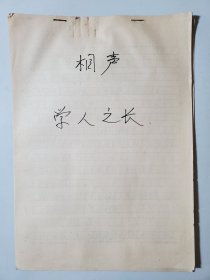 相声
学人之长